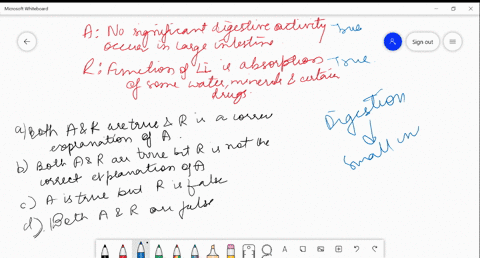 Microsoft Whiteboard
Sign out
A: No significant digestive activity True
occurs in large intestine
R: Function of LI is absorption True
of some water, minerals & certain
drugs.
a) Both A & R are true & R is a correct
explanation of A.
b) Both A & R are true but R is not the
correct explanation of A
c) A is true but R is false
d) Both A & R are false
Digestion
small in